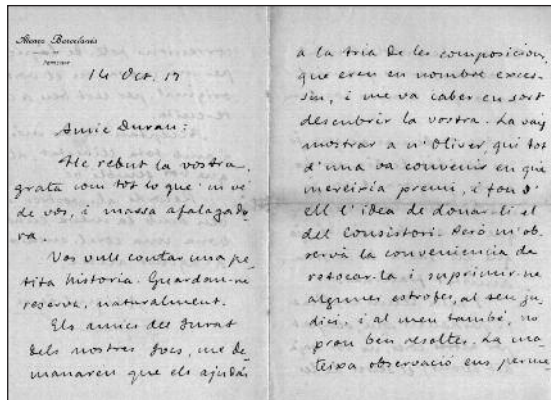 Ateneu Barcelonès
14 Oct. 17
Amic Duran:
He rebut la vostra,
grata com tot lo que 'm ve
de vos, i massa afalagado-
ra.
Vos vull contar una pe-
tita historia. Guardau-ne
reserva, naturalment.
Els amics del Jurat
dels nostres Jocs, me de-
manaren que els ajudás
a la tria de les composicions,
que eren en nombre exces-
siu, i me va caber en sort
descubrir la vostra. La vaig
mostrar a n'Oliver, qui tot
d'una va convenir en que
mereixia premi, i fou d'
ell l'idea de donar-li el
del Consistori. Però m'ob-
servà la conveniencia de
retocar-la i suprimir-ne
algunes estrofes, al seu ju-
dici, i al meu també, no
prou ben resoltes. La ma-
teixa observació ens perme